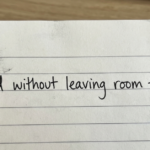 without leaving room